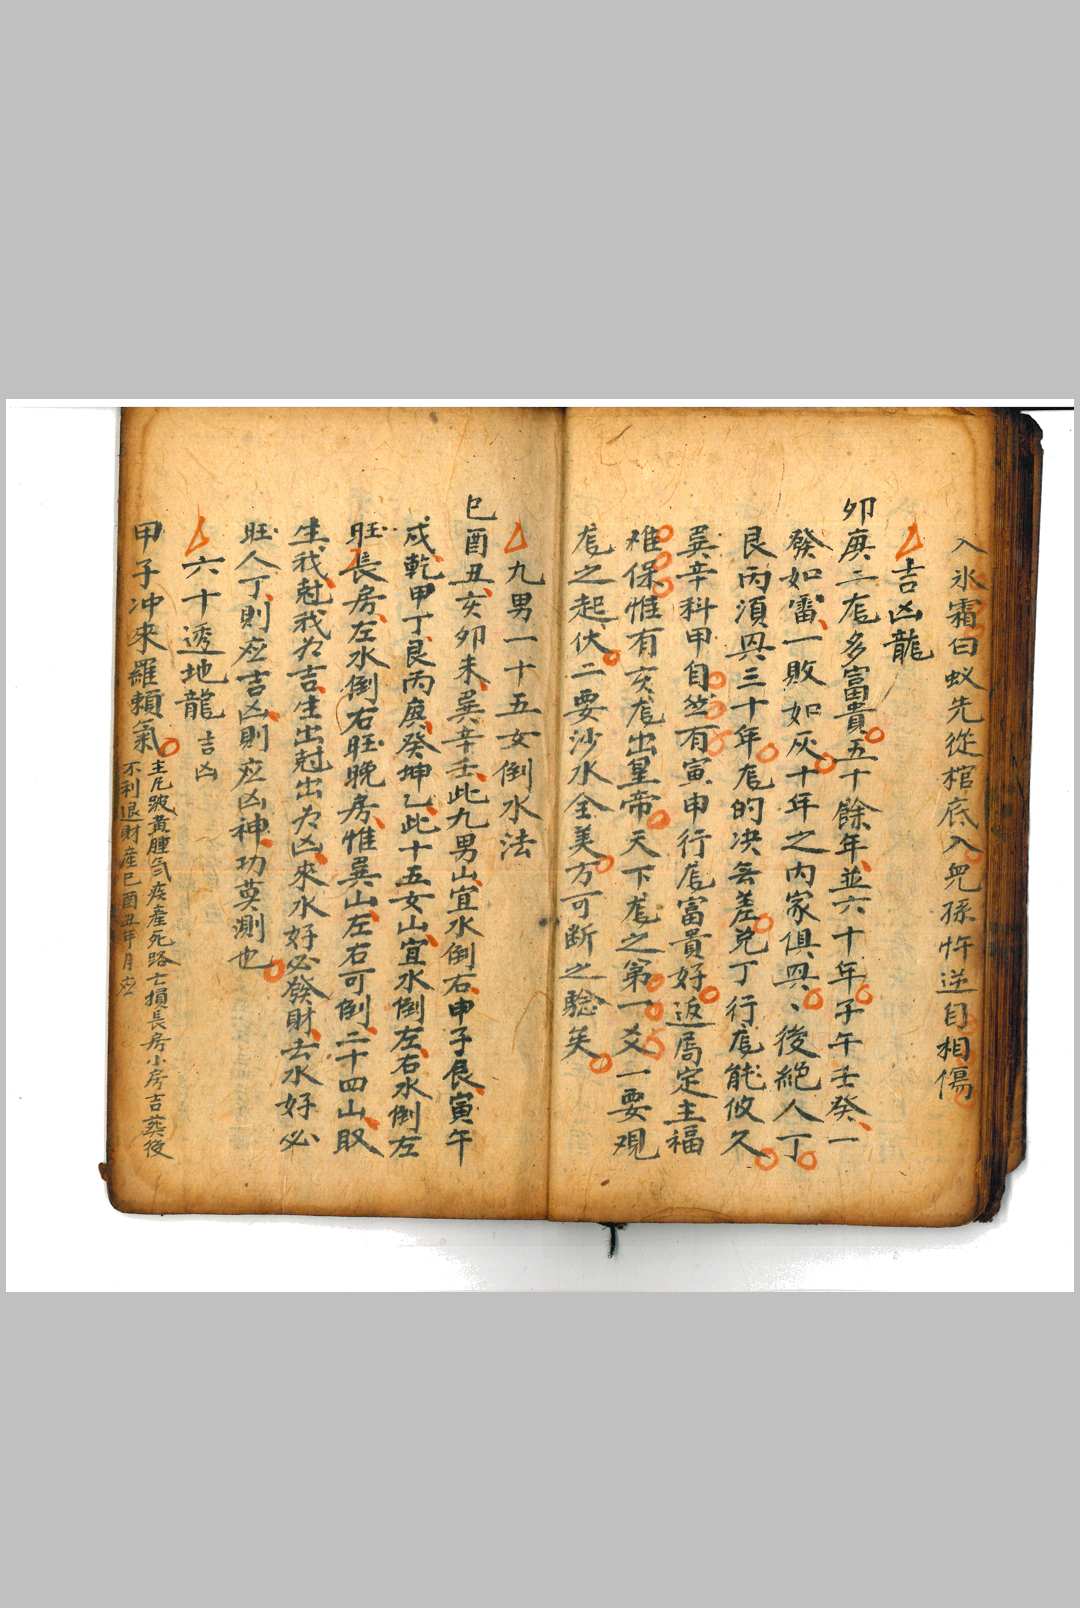 入水霜白蚁先從棺底入兒孫忤逆自相傷
吉凶龍
卯庚二龙多富貴五十餘年並六十年子午壬癸一
發如雷一敗如灰十年之内家俱興、後絕人丁
艮丙湏興三十年龙的决無差兊丁行龙能攸久
巽辛科甲自然有寅申行龙富貴好返爲定主福
难保惟有亥龙出皇帝天下龙之第一爻一要观
龙之起伏二要沙水全美方可断之騐矣
九男一十五女倒水法
巳酉丑亥卯未巽辛壬此九男山宜水倒右申子艮寅午
戍乾甲丁艮丙庚癸坤乙此十五女山宜水倒左右水倒左
旺長房左水倒右旺晚房惟巽山左右可倒二十四山取
生我尅我为吉生出尅出为凶來水好必發財去水好必
旺人丁則应吉凶則应凶神功莫測也
六十透地龍吉凶
甲子冲來羅賴氣
主瘋跛黃腫氣疾產死路亡損長房小房吉葬後
不利退財産巳酉丑年月应